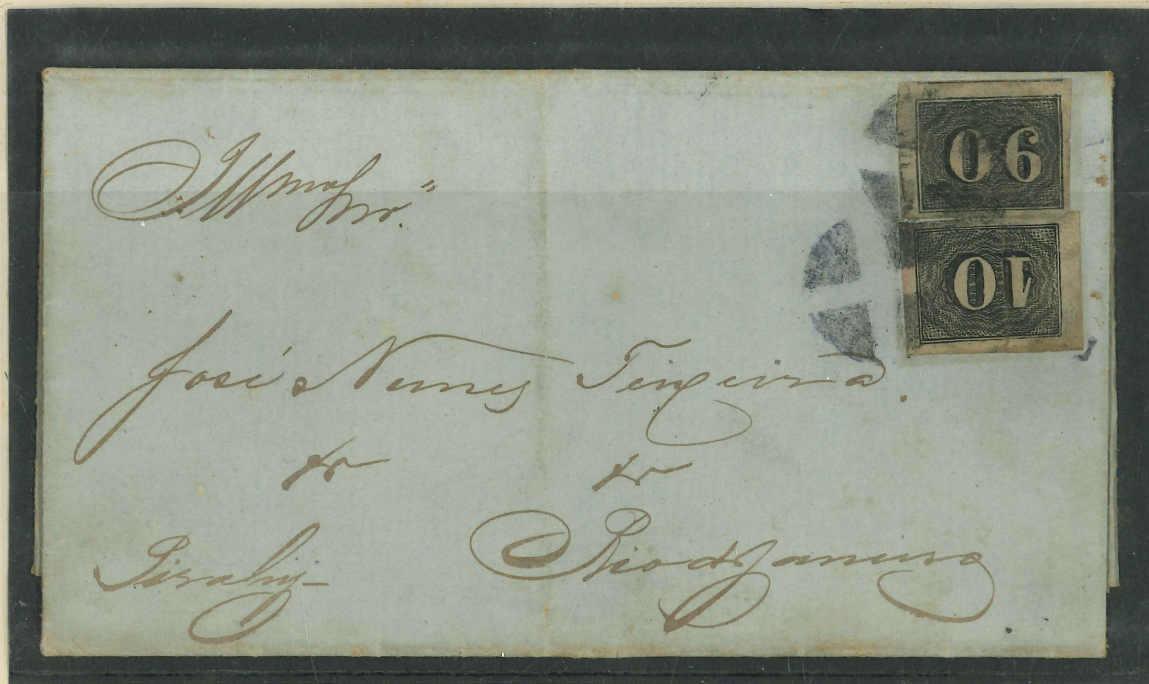 Illmo Snr.
90
10
José Nunes Teixeira.
Pirahy - Rio de Janeiro